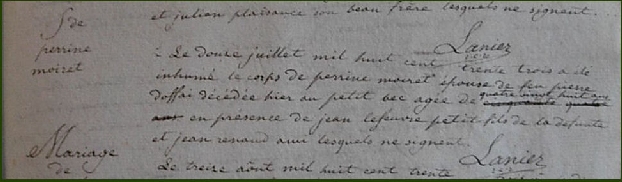 S de
perrine
moiret
et julian plaisance son beau frère lesquels ne signant.
Lanier
Le douze juillet mil huit cent trente trois a été
inhumé le corps de perrine moiret épouse de feu pierre
doffai décédée hier au petit bec agée de quatre vingt huit ans
cinquante quatre
ans en presence de jean lefeuvre petit fils de la defunte
et jean renaud qui lesquels ne signent.
Lanier
Mariage
de
Le treize août mil huit cent trente